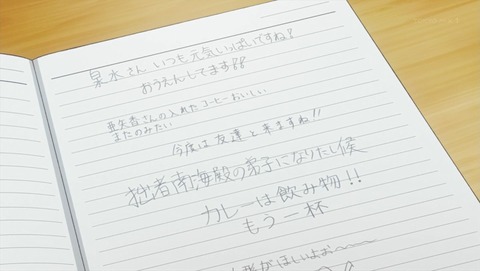 泉水さん いつも元気いっぱいですね!
おうえんしてます!!
亜矢香さんの入れたコーヒーおいしい
またのみたい
今度は友達と来ますね!!
拙者南海殿の弟子になりたし候
カレーは飲み物!!
もう一杯
がほしいよお〜〜〜